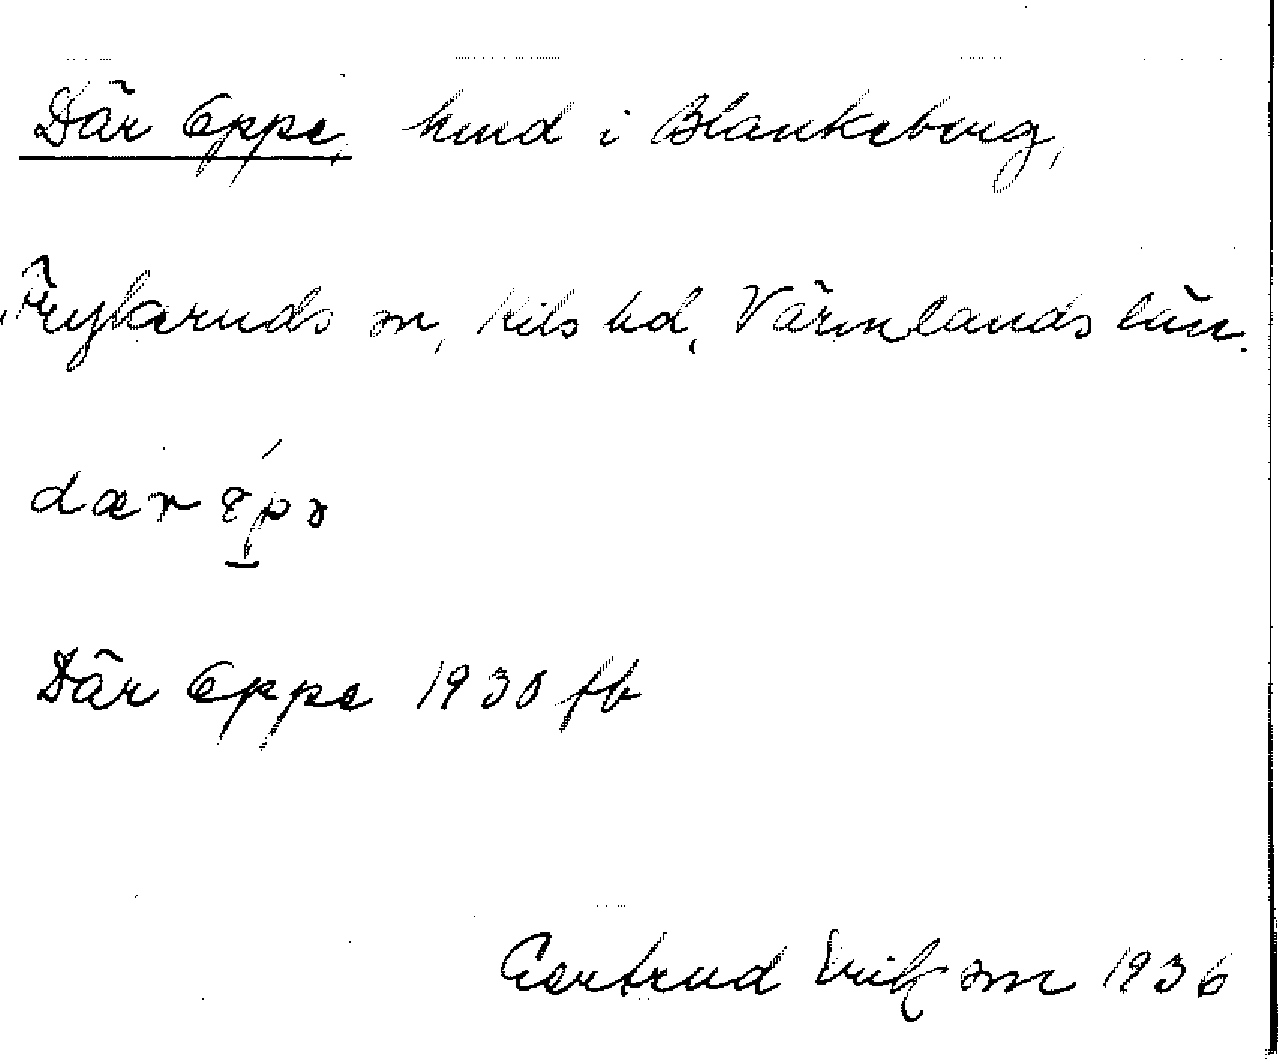 Där Oppe, hmd i Blankeberg,
Frykeruds sn, Kils hd, Värmlands län.
Där Oppe 1930 fb
Gertrud Erikson 1936